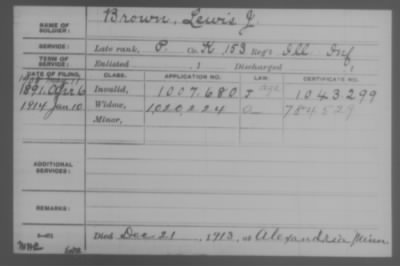 NAME OF SOLDIER: Brown, Lewis J.
SERVICE: Late rank, P. Co. K 153 Reg't Ill Inf
TERM OF SERVICE: Enlisted , 1 Discharged , 1
DATE OF FILING. CLASS. APPLICATION NO. LAW. CERTIFICATE NO.
1891 Apr 6 Invalid, 1007.680 J age 1.043.299
1914 Jan 10 Widow, 1,020,224 O 784529
Minor,
ADDITIONAL SERVICES:
REMARKS:
Died Dec 21, 1913, at Alexandria Minn.